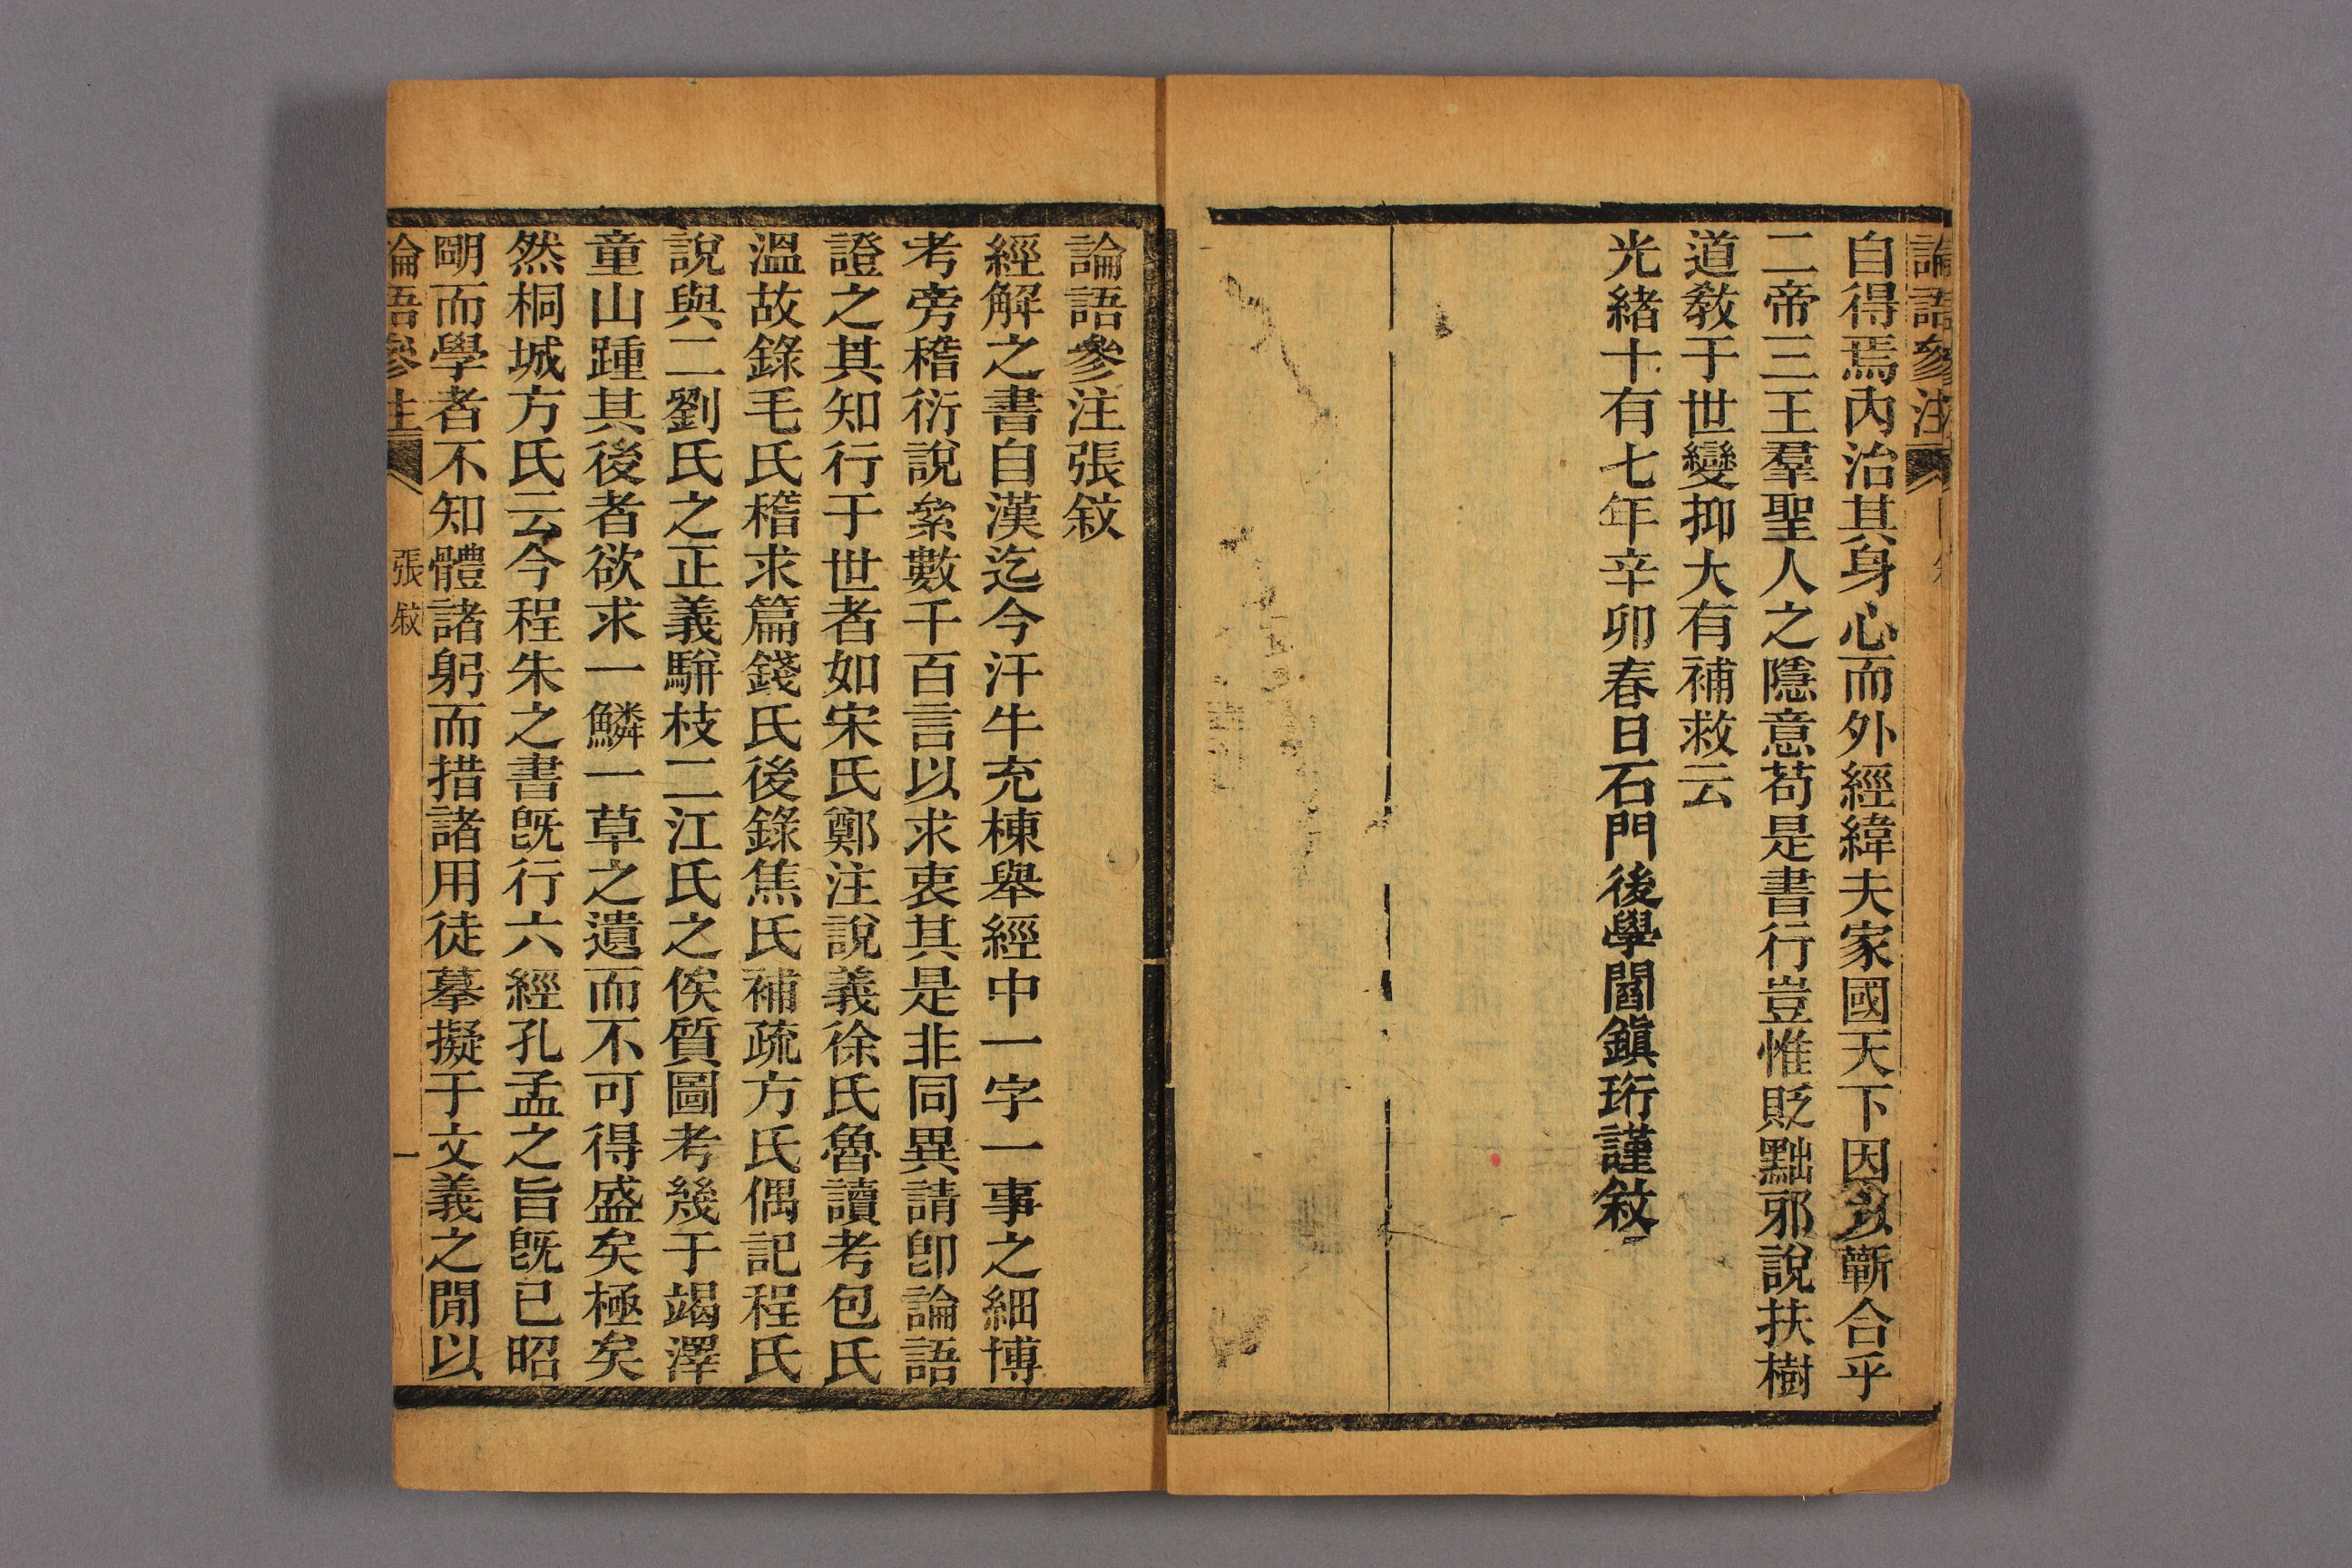 論語參注
自得焉內治其身心而外經緯夫家國天下因以蘄合乎
二帝三王羣聖人之隱意苟是書行豈惟貶黜邪說扶樹
道敎于世變抑大有補救云
光緒十有七年辛卯春日石門後學閻鎭珩謹敘
論語參注張敘
經解之書自漢迄今汗牛充棟舉經中一字一事之細博
考旁稽衍說絫數千百言以求衷其是非同異請卽論語
證之其知行于世者如宋氏鄭注說義徐氏魯讀考包氏
溫故錄毛氏稽求篇錢氏後錄焦氏補疏方氏偶記程氏
說與二劉氏之正義駢枝二江氏之俟質圖考幾于竭澤
童山踵其後者欲求一鱗一草之遺而不可得盛矣極矣
然桐城方氏云今程朱之書旣行六經孔孟之旨旣已昭
朙而學者不知體諸躬而措諸用徒摹擬于文義之閒以
論語參注 張敘 一